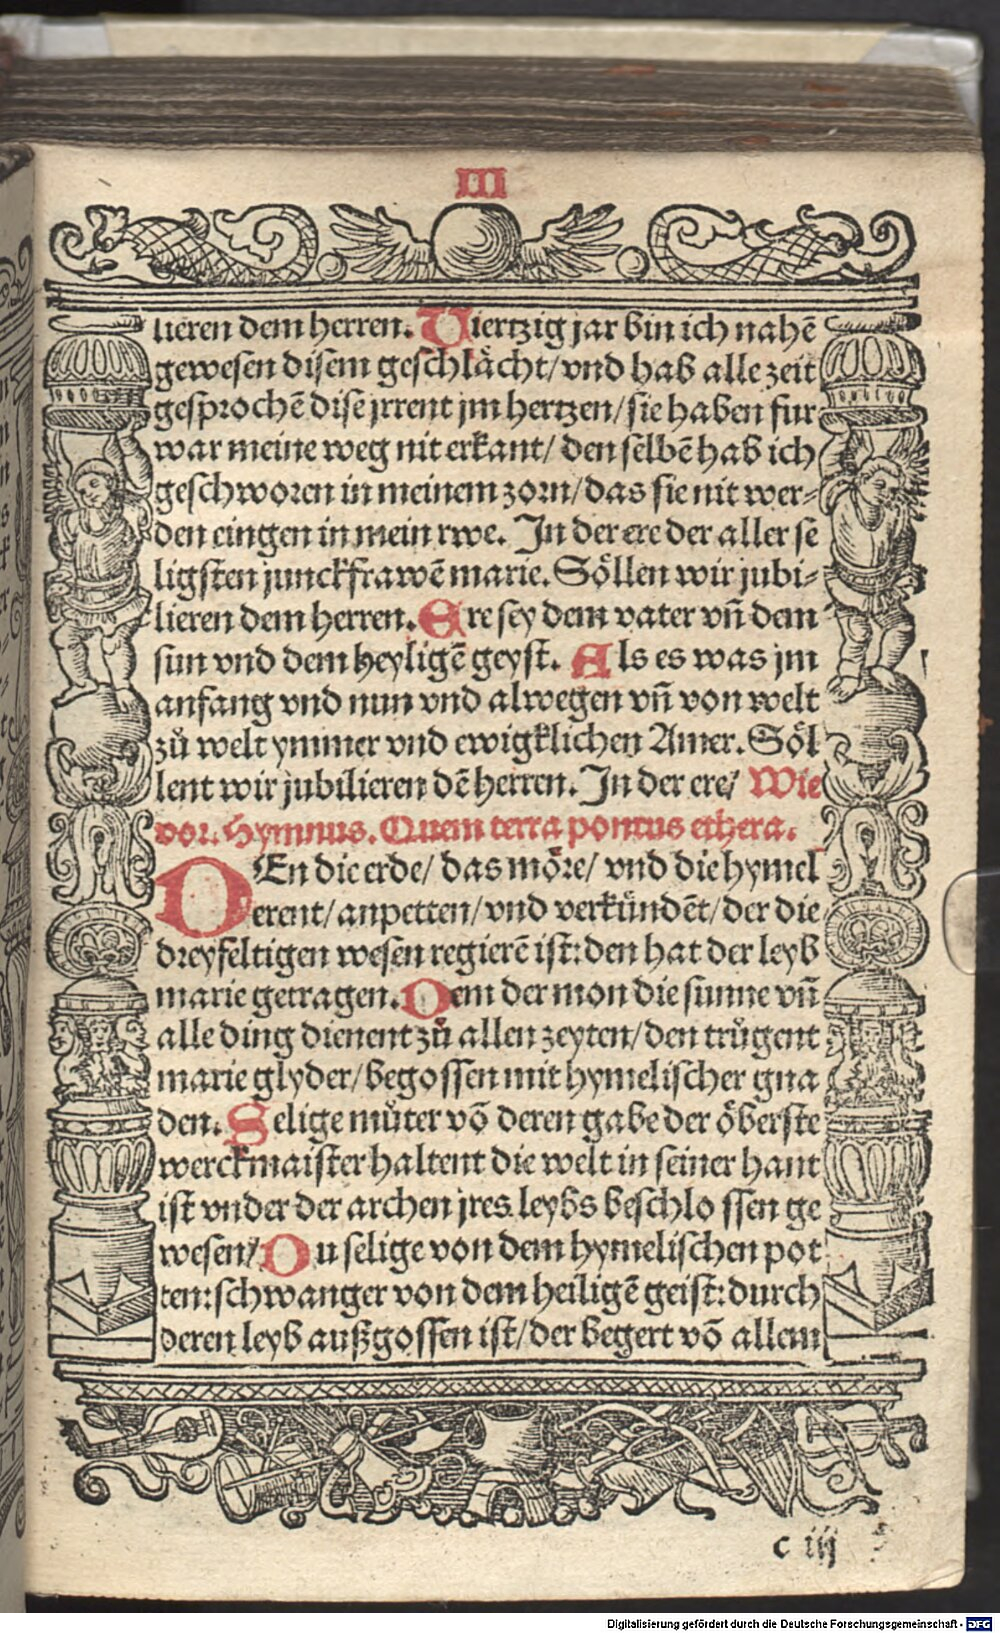 III
lieren dem herren. Viertzig jar bin ich nahē
gewesen disem geschlächt/ vnd hab alle zeit
gesprochē dise jrrent jm hertzen/ sie haben fur
war meine weg nit erkant/ den selbē hab ich
geschworen in meinem zorn/ das sie nit wer⸗
den eingen in mein rwe. In der ere der aller se
ligsten junckfrawē marie. Söllen wir jubi⸗
lieren dem herren. Ere sey dem vater vn̄ dem
sun vnd dem heyligē geyst. Als es was jm
anfang vnd nun vnd alwegen vn̄ von welt
zů welt ymmer vnd ewigklichen Amer. Söl
lent wir jubilieren dē herren. In der ere/ Wie
vor. Hymnus. Quem terra pontus ethera.
DEn die erde/ das möre/ vnd die hymel
erent/ anpetten/ vnd verkündēt/ der die
dreyfeltigen wesen regierē ist: den hat der leyb
marie getragen. Dem der mon die sunne vn̄
alle ding dienent zů allen zeyten/ den trůgent
marie glyder/ begossen mit hymelischer gna
den. Selige můter vō deren gabe der öberste
werckmaister haltent die welt in seiner hant
ist vnder der archen jres leybs beschlossen ge
wesen/ Du selige von dem hymelischen pot
ten: schwanger von dem heiligē geist: durch
deren leyb außgossen ist/ der begert vō allem
c iij
Digitalisierung gefördert durch die Deutsche Forschungsgemeinschaft - DFG